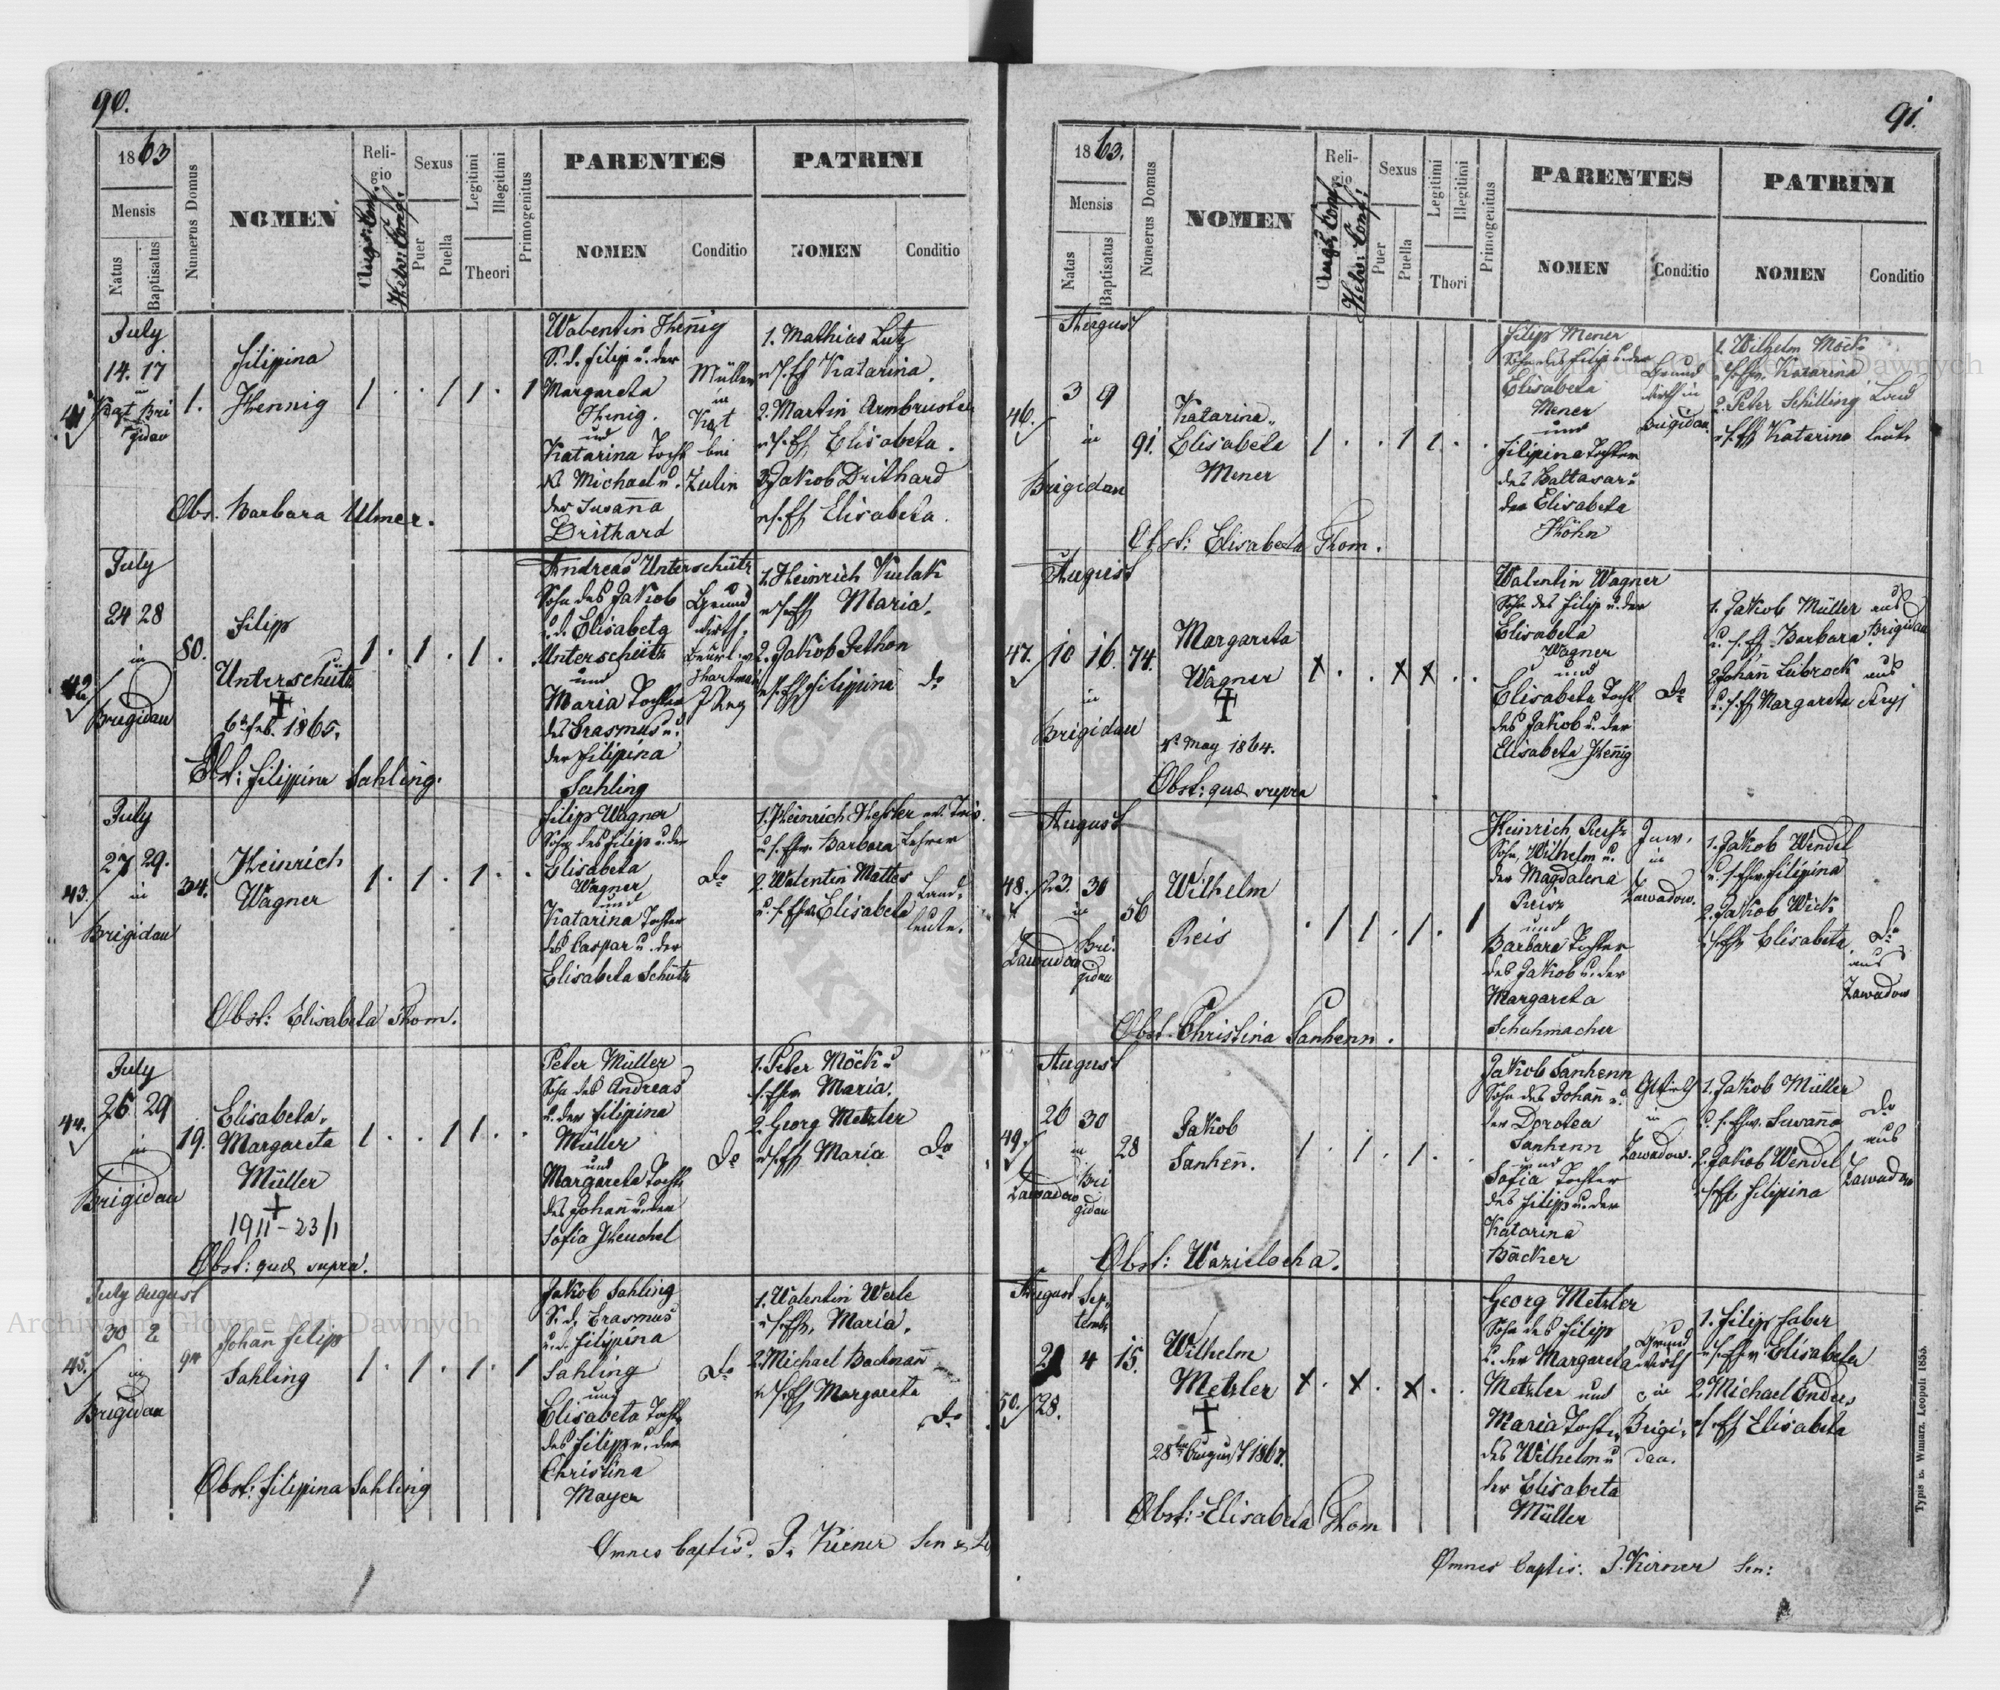 90.
1863
Mensis
Natus
Baptisatus
Numerus Domus
NOMEN
Religio
Augs: Conf.
Helv: Conf.
Sexus
Puer
Puella
Legitimi
Illegitimi
Theori
Primogenitus
PARENTES
NOMEN
Conditio
PATRINI
NOMEN
Conditio
July
14. 17
in
Kat Bri
gidau
41
1.
Filippina
Hennig
1 . . 1 1 . 1
Walentin Henig
S. d. Filip u. der
Margareta
Henig.
und
Katarina Tocht
d. Michael u.
der Susana
Drithard
Müller
in
Kat
bei
Zulin
1. Mathias Lutz
u. s. Eff Katarina.
2. Martin Armbruster
u. s. Eff. Elisabeta.
3. Jakob Drithard
u. s. Eff Elisabeta.
Obs. Barbara Ulmer.
July
24 28
in
Brigidau
42
80.
Filipp
Unterschütz
6 Feb. 1865.
1 . 1 . 1 .
Andreas Unterschütz
Sohn des Jakob
u. d. Elisabeta
Unterschütz
und
Maria Tochter
des Erasmus u.
der Filipina
Sahling
Grund
wirth,
1. Heinrich Kulak
u. s. Eff Maria.
2. Jakob Pethon
u. s. Eff Filipina do
Obst: Filippina Sahling.
July
27 29.
in
Brigidau
43.
34.
Heinrich
Wagner
1 . 1 . 1 . .
Filip Wagner
Sohn des Filip u. der
Elisabeta
Wagner
und
Katarina Tochter
des Caspar u. der
Elisabeta Schütz
Do
1. Heinrich Heßler
u. s. Ehw. Barbara Lehrer
2. Walentin Mattes
u. s. Ehw Elisabeta
Land-
leute.
Obst: Elisabeta Thom.
July
26 29
in
Brigidau
44.
19.
Elisabeta,
Margareta
Müller
1911 - 23/1
1 . . 1 1 . .
Peter Müller
Sohn des Andreas
u. der Filipina
Müller
und
Margareta Tocht
des Johan u. der
Sofia Heuchel
Do
1. Peter Möck u
s. Ehw. Maria.
2. Georg Metzler
u. s. Eff Maria Do
Obst: quæ supra.
July August
30 2
in
Brigidau
45.
Johan Filip
Sahling
1 . 1 . 1 . 1
Jakob Sahling
S. d. Erasmus
u. d. Filipina
Sahling
und
Elisabeta Tocht
des Filipp u. der
Christina
Mayer
Do
1. Walentin Werle
u. s. Eff. Maria.
2. Michael Bachman
u. s. Eff Margareta
Do
Obst: Filipina Sahling
Omnes baptis. J. Kirner Sen
91.
1863.
Mensis
Natus
Baptisatus
Numerus Domus
NOMEN
Religio
Augs: Conf.
Helv: Conf:
Sexus
Puer
Puella
Legitimi
Illegitimi
Thori
Primogenitus
PARENTES
NOMEN
Conditio
PATRINI
NOMEN
Conditio
August
3 9
in
Brigidau
46.
91.
Katarina,
Elisabeta
Mener
1 . . 1 1 . .
Filip Mener
Sohn des Filip u. der
Elisabeta
Mener
und
Filipina Tochter
des Baltasar u
der Elisabeta
Höhn
Grund
wirth in
Brigidau.
1. Wilhelm Möck
u. s. Ehw. Katarina
2. Peter Schilling
u. s. Eff Katarina
Land
leute
Obst: Elisabeta Thom.
August
10 16.
in
Brigidau
47.
74.
Margareta
Wagner
May 1864.
x . . x x . .
Walentin Wagner
Sohn des Filip u. der
Elisabeta
Wagner
und
Elisabeta Tocht
des Jakob u. der
Elisabeta Henig
Do
1. Jakob Müller aus
u. s. Eff. Barbara Brigidau
2. Johan Leibrock aus
u. s. Eff Margareta Stryj
Obst: quæ supra
August
23. 30
in
Zawadow
Bri-
gidau
48.
56
Wilhelm
Reis
. 1 1 . 1 . 1
Heinrich Reisz
Sohn, Wilhelm u.
der Magdalena
Reisz
und
Barbara Tochter
des Jakob u. der
Margareta
Schuhmacher
Inw.
in
Zawadow.
1. Jakob Wendel
u. s. Ehw Filipina
2. Jakob Wick
u. s. Ehw Elisabeta
Do
aus
Zawadow
Obst. Christina Sanhenn.
August
26 30
in
Zawadow
Bri
gidau
49.
28
Jakob
Sanhen.
1 . 1 . 1 . .
Jakob Sanhenn
Sohn des Johan u.
der Dorotea
Sanhenn
und
Sofia Tochter
des Filip u. der
Katarina
Bäcker
in
Zawadow.
1. Jakob Müller
u. s. Ehw. Susana
2. Jakob Wendel
u. s. Eff Filipina
Do
aus
Zawadow
Obst: Wazilocha.
August Sep-
temb
4
28.
50.
15.
Wilhelm
Metzler
28ten August 1867.
x . x . x . .
Georg Metzler
Sohn des Filipp
u. der Margareta
Metzler und
Maria Tochter
des Wilhelm u
der Elisabeta
Müller
Grund
wirth
in
Brigi-
dau.
1. Filipp Faber
u. s. Ehw. Elisabeta
2. Michael Endres
u. s. Eff Elisabeta
Obst: Elisabeta Thom
Omnes baptis. J. Kirner Sen:
Typis E. Winarz. Leopoli 1855.
Archiwum Główne Akt Dawnych